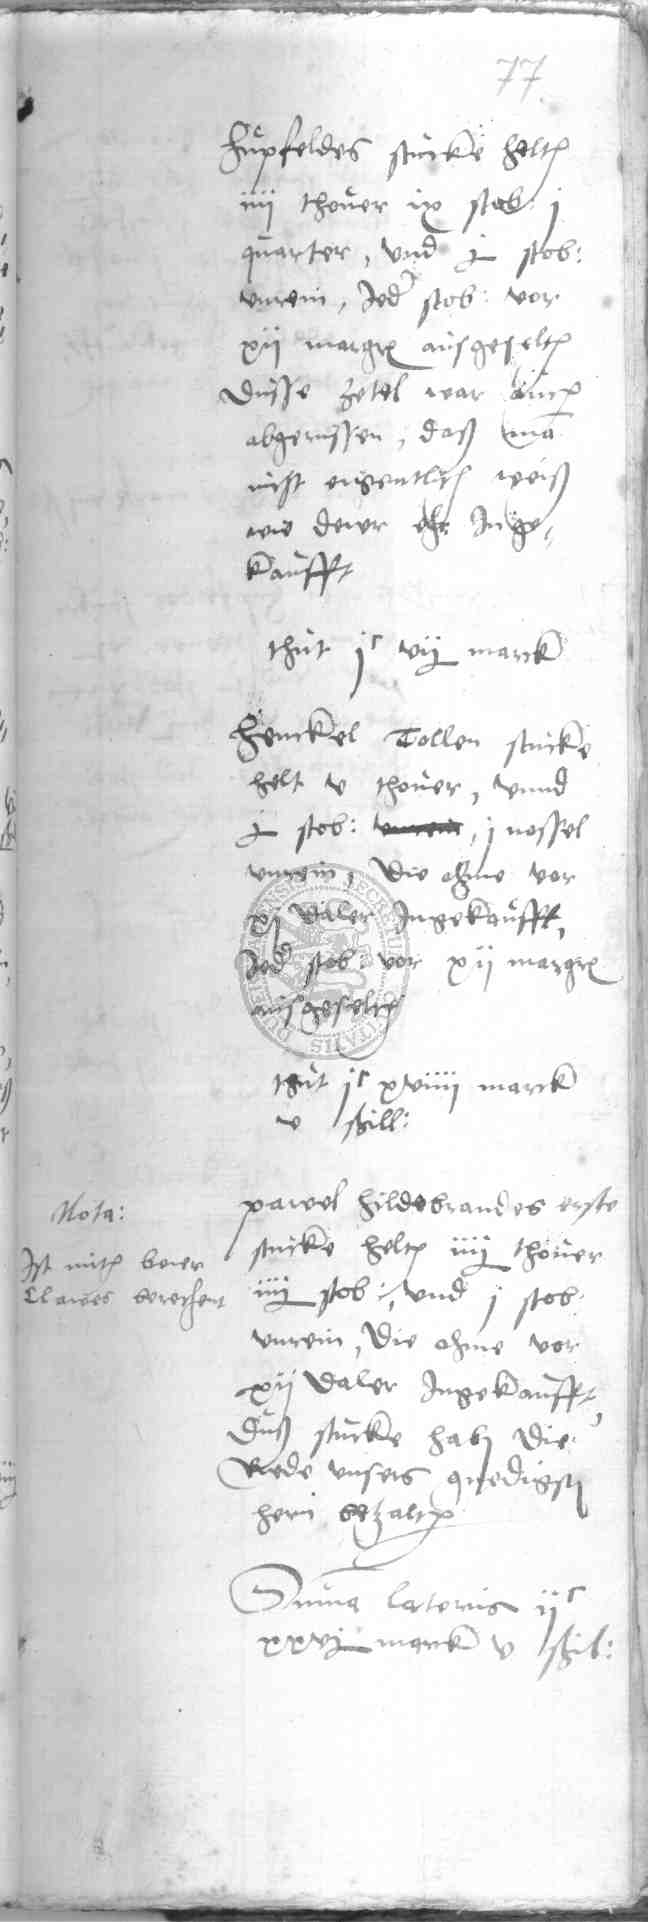 77
Hupfeldes stucke helt
iiij thover ix stob: j
quarter, vnd j stob:
vnrein, Jed stob: vor
xij margr ausgeselt
Dusse zetel war
abgerussen, daß ma
nicht eigentlich weiß
wie dewr ehr Inge,
kaufft
thut jc vij marck
Henckel Tollen stucke
helt v thover, vnnd
j stob: vnrein, j nossel
vnrein, Die ohme vor
xj Daler Ingekaufft,
Jed stob: vor xij margr
ausgeselt
thut jc xviiij marck
v ßill:
Nota:
Ist mith beier
Clawes berechent
pawel Hildebrandes erste
stucke helt iiij thover
iiij stob:, vnd j stob:
vnrein, Die ohme vor
xij Daler Ingekaufft,
Duß stucke hab Die
Rede vnsers gnedigst
hern betzalt
Suma lateris ijc
xxvj marck v ßil: